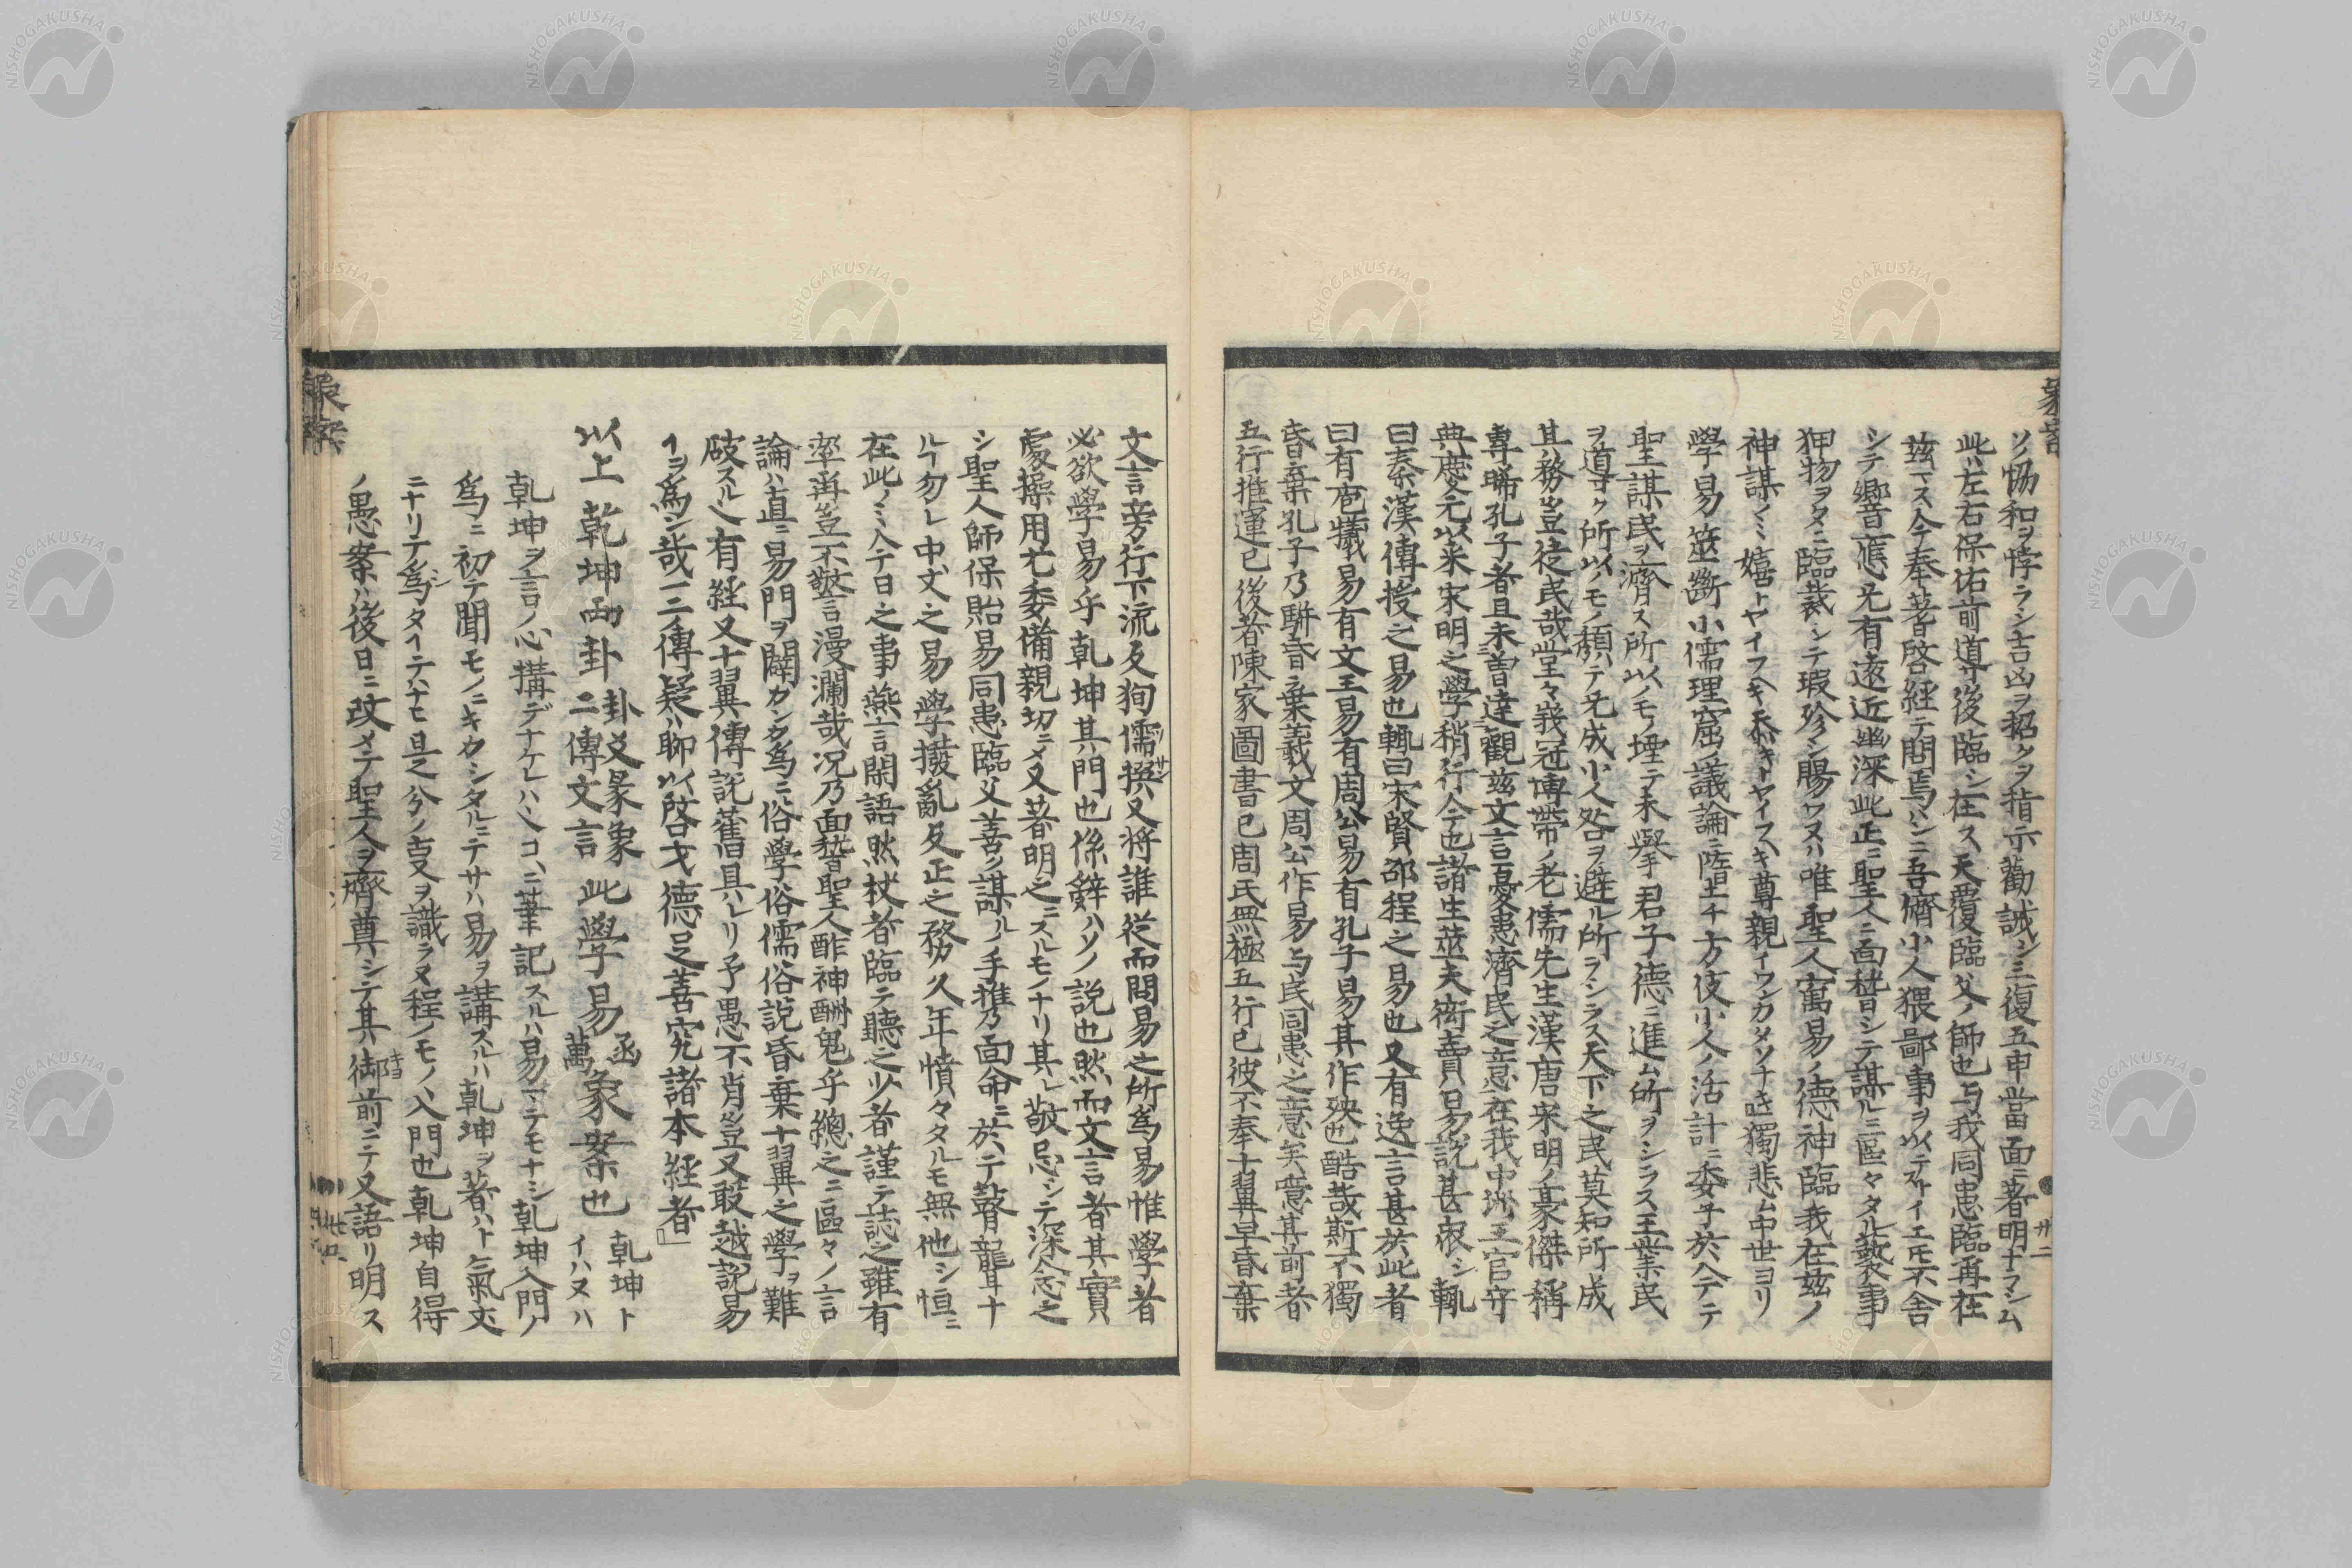 ソノ恊和ヲ悖ラシ吉凶ヲ招クヲ指示勸誡シ三復五申當面ニ著明ナラシム
此ハ左右保佑前導後臨シ在ス天覆臨父ノ師也与我同患臨再在
茲マス今奉著啓経テ問焉ハンニ吾儕小人猥鄙事ヲ以テスト イエ𪜈不舎
シテ響應尤有遠近幽深此正ニ聖人ニ面稽シテ謀ルニ區々タル褻事
狎物ヲタニ臨裁シテ瑕殄シ賜ワヌハ唯聖人寓易ノ德神臨我在茲ノ
神謀ノミ嬉トヤイフヘキ忝キトヤイフヘキ尊親イワンカタソナキ獨悲ム中世ヨリ
學易筮斷小儒理窟議論ニ陸上チ方伎小人ノ活計ニ委チ於今テ
聖謀民ヲ濟ス所以ノモノ堙テ未擧君子德ニ進ム所ヲシラス王業民
ヲ導ク所以ノモノ頽テ尤成小人咎ヲ避ル所ヲシラス天下之民莫知所成
其務豈徒民哉堂々峩冠博帶ノ老儒先生漢唐宋明ノ豪傑稱
専睎孔子者且未曽達觀茲文言憂患濟民之意在我中洲王官守
典慶元以来宋明之學稍行今也諸生莁夫衒賣易說甚衆シ輙
曰秦漢傳授之易也輙曰宋賢邵程之易也又有逸言甚於此者
曰有庖犧易有文王易有周公易有孔子易其作殃也酷哉斯不獨
昏棄孔子乃駢昏棄羲文周公作易与民同患之意矣噫其前者
五行推運已後者陳家圖書已周氏無極五行已彼不奉十翼早昏棄
文言旁行下流及狥儒撰又将誰從而問易之所為易惟學者
必欲學易乎乹坤其門也係辭ハソノ説也然而文言者其實
處操用尤委備親切ニメ又著明之ニスルモノナリ其レ敬忌シテ深念之
シ聖人師保貽易同患臨父善ク謀ルノ手推乃面命ニ於テ瞽聾十
ルヿ勿レ中文之易學撥亂反正之務久年憤々タルモ無他シ恒ニ
在此ノミ今日之事燕言閑語然杖者臨テ聽之少者謹テ誌之雖有
率再豈不敬言漫瀾哉况乃面稽聖人酢神酬鬼乎總之ニ區々ノ言
論ハ直ニ易門ヲ闢カンカ為ニ俗學俗儒俗説昏棄十翼之學ヲ難
破スルヘ有経又十翼傳説舊具レリ予愚不肖豈又敢越說易
ヿヲ為ン哉一二傳疑ハ聊以啓才德足善究諸本経者」
以上乾坤両卦 卦爻彖象 二傳文言 此學易 函萬 象案也 乹坤ト イハヌハ
乹坤ヲ言ノ心構デナケレハヘコヽニ筆記スルハ易マテモナシ乹坤入門ノ
為ニ初テ聞モノニキカシタルニテサハ易ヲ講スルハ乹坤ヲ著ハト氣交
ニナリテ為シタイテハナヒ是之分ノ㕝ヲ識ラヌ程ノモノヘ入門也乹坤自得
ノ愚案ハ後日ニ改メテ聖人ヲ齊尊シテ其御前ニテ又語リ明ス
廿二